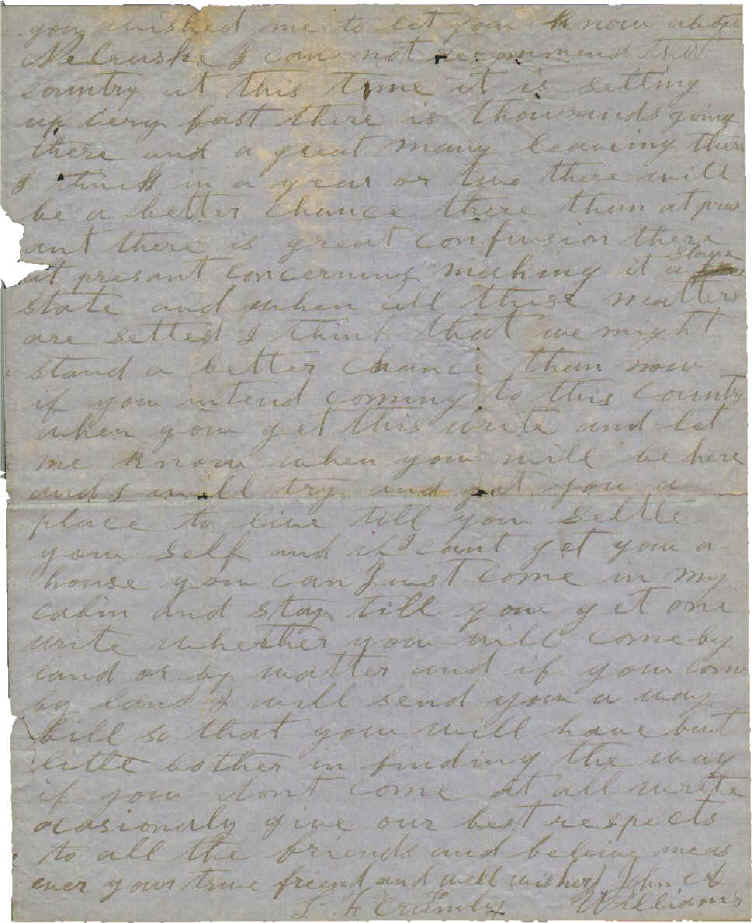 you wished me to let you know about
Nebruska I can not recommend that
country at this time it is setling
up very fast there is thousands going
there and a great many leaving there
I think in a year or two there will
be a better chance there than at pres
ant there is great confusion there
at presant concerning making it a slave
state and when all these matters
are setled I think that we might
stand a better chance than now
if you intend coming to this country
when you get this write and let
me know when you will be here
and I will try and get you a
place to live till you settle
your self and if I cant get you a
house you can Just come in my
cabin and stay till you get one
write whether you will come by
land or by watter and if you come
by land I will send you a way
bill so that you will have but
little bother in finding the way
if you dont come at all write
ocasionaly give our best respects
to all the friends and believe me as
ever your true friend and well wisher John A
Williams